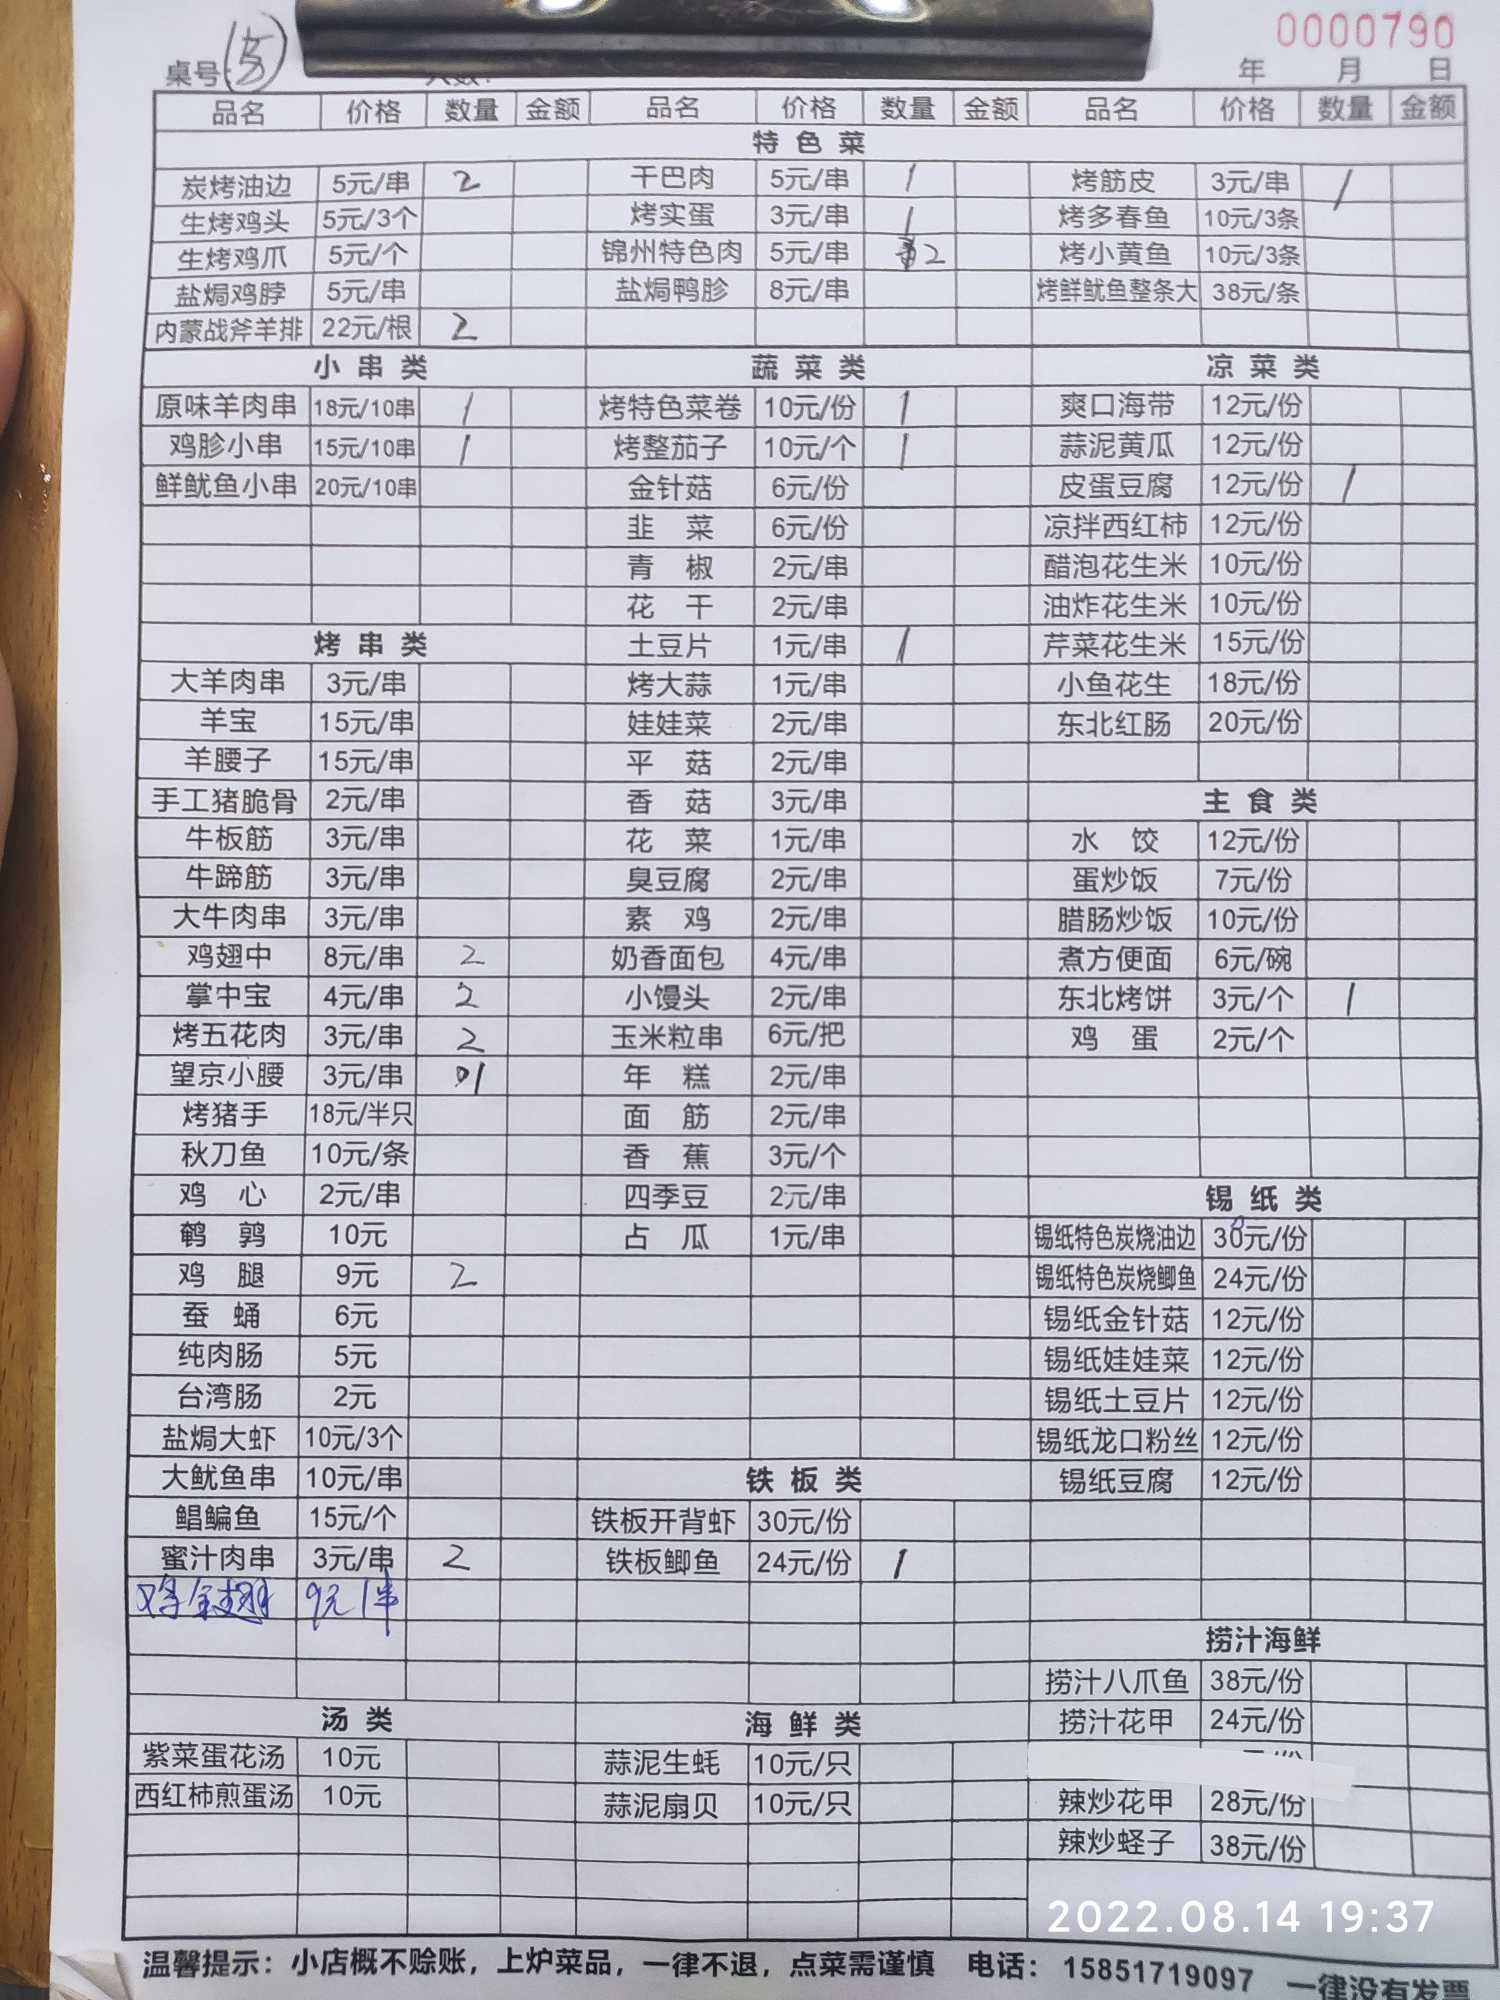 0000790
桌号: 年 月 日
品名 价格 数量 金额 品名 价格 数量 金额 品名 价格 数量 金额
特色菜
炭烤油边 5元/串 2 干巴肉 5元/串 1 烤筋皮 3元/串 1
生烤鸡头 5元/3个 烤实蛋 3元/串 1 烤多春鱼 10元/3条
生烤鸡爪 5元/个 锦州特色肉 5元/串 2 烤小黄鱼 10元/3条
盐焗鸡脖 5元/串 盐焗鸭胗 8元/串 烤鲜鱿鱼整条大 38元/条
内蒙战斧羊排 22元/根 2
小串类 蔬菜类 凉菜类
原味羊肉串 18元/10串 1 烤特色菜卷 10元/份 1 爽口海带 12元/份
鸡胗小串 15元/10串 1 烤整茄子 10元/个 1 蒜泥黄瓜 12元/份
鲜鱿鱼小串 20元/10串 金针菇 6元/份 皮蛋豆腐 12元/份 1
韭菜 6元/份 凉拌西红柿 12元/份
青椒 2元/串 醋泡花生米 10元/份
花干 2元/串 油炸花生米 10元/份
烤串类 土豆片 1元/串 1 芹菜花生米 15元/份
大羊肉串 3元/串 烤大蒜 1元/串 小鱼花生 18元/份
羊宝 15元/串 娃娃菜 2元/串 东北红肠 20元/份
羊腰子 15元/串 平菇 2元/串
手工猪脆骨 2元/串 香菇 3元/串 主食类
牛板筋 3元/串 花菜 1元/串 水饺 12元/份
牛蹄筋 3元/串 臭豆腐 2元/串 蛋炒饭 7元/份
大牛肉串 3元/串 素鸡 2元/串 腊肠炒饭 10元/份
鸡翅中 8元/串 2 奶香面包 4元/串 煮方便面 6元/碗
掌中宝 4元/串 2 小馒头 2元/串 东北烤饼 3元/个 1
烤五花肉 3元/串 2 玉米粒串 6元/把 鸡蛋 2元/个
望京小腰 3元/串 1 年糕 2元/串
烤猪手 18元/半只 面筋 2元/串
秋刀鱼 10元/条 香蕉 3元/个
鸡心 2元/串 四季豆 2元/串 锡纸类
鹌鹑 10元 占瓜 1元/串 锡纸特色炭烧油边 30元/份
鸡腿 9元 2 锡纸特色炭烧鲫鱼 24元/份
蚕蛹 6元 锡纸金针菇 12元/份
纯肉肠 5元 锡纸娃娃菜 12元/份
台湾肠 2元 锡纸土豆片 12元/份
盐焗大虾 10元/3个 锡纸龙口粉丝 12元/份
大鱿鱼串 10元/串 铁板类 锡纸豆腐 12元/份
鲳鳊鱼 15元/个 铁板开背虾 30元/份
蜜汁肉串 3元/串 2 铁板鲫鱼 24元/份 1
鸡全翅 9元/串
捞汁海鲜
捞汁八爪鱼 38元/份
汤类 海鲜类 捞汁花甲 24元/份
紫菜蛋花汤 10元 蒜泥生蚝 10元/只
西红柿煎蛋汤 10元 蒜泥扇贝 10元/只 辣炒花甲 28元/份
辣炒蛏子 38元/份
2022.08.14 19:37
温馨提示：小店概不赊账，上炉菜品，一律不退，点菜需谨慎 电话：15851719097 一律没有发票